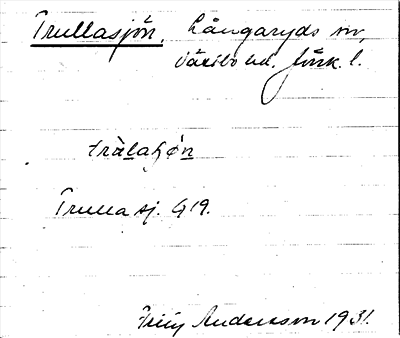 Trullasjön, Långaryds sn,
Västbo hd. Jönk. l.
Trulla sj. G 19.
Andersson 1931.